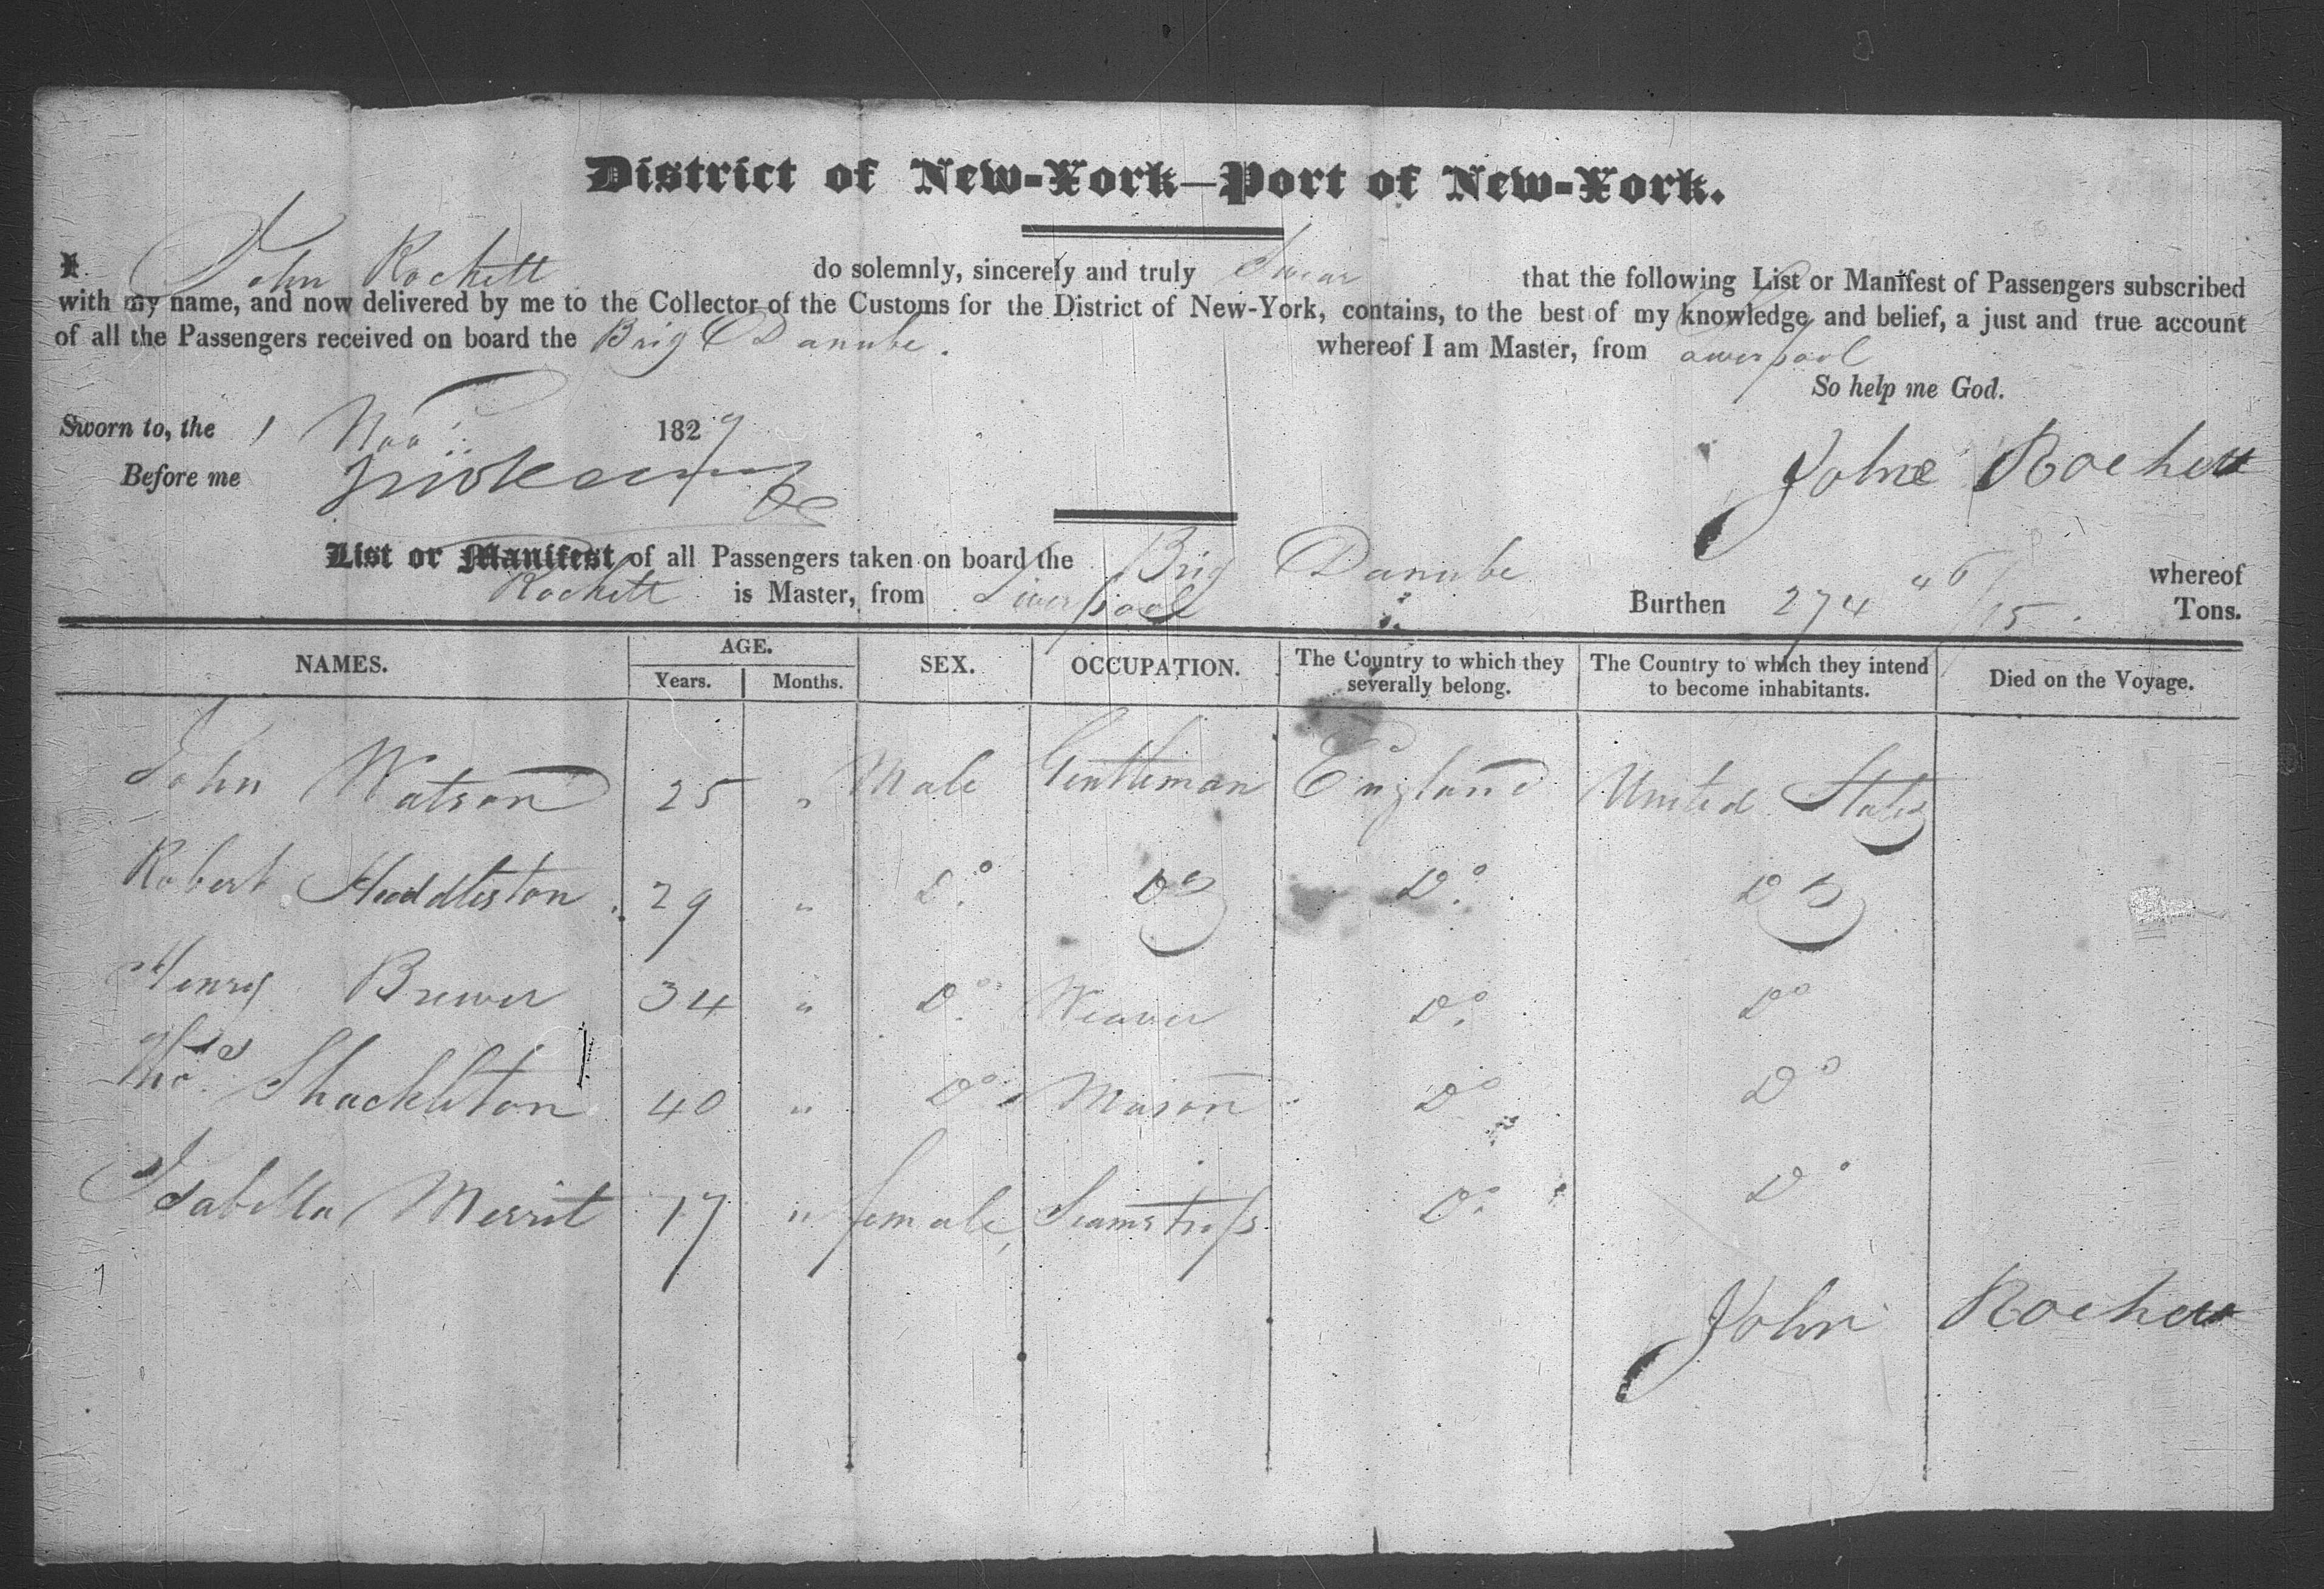 District of New-York—Port of New-York.
I John Rockett do solemnly, sincerely and truly Swear that the following List or Manifest of Passengers subscribed
with my name, and now delivered by me to the Collector of the Customs for the District of New-York, contains, to the best of my knowledge and belief, a just and true account
of all the Passengers received on board the Brig Danube. whereof I am Master, from Liverpool
So help me God.
Sworn to, the 1 Nov 1829
Before me
John Rockett
List or Manifest of all Passengers taken on board the Brig Danube whereof
Rockett is Master, from Liverpool Burthen 274 46/95 Tons.
NAMES. AGE. Years. Months. SEX. OCCUPATION. The Country to which they severally belong. The Country to which they intend to become inhabitants. Died on the Voyage.
John Watson 25 " Male Gentleman England United States
Robert Huddleston 29 " Do Do Do Do
Henry Brewer 34 " Do Weaver Do Do
Thos Shackleton 40 " Do Mason Do Do
Isabella Merrit 17 " female, Seamstress Do Do
John Rockett